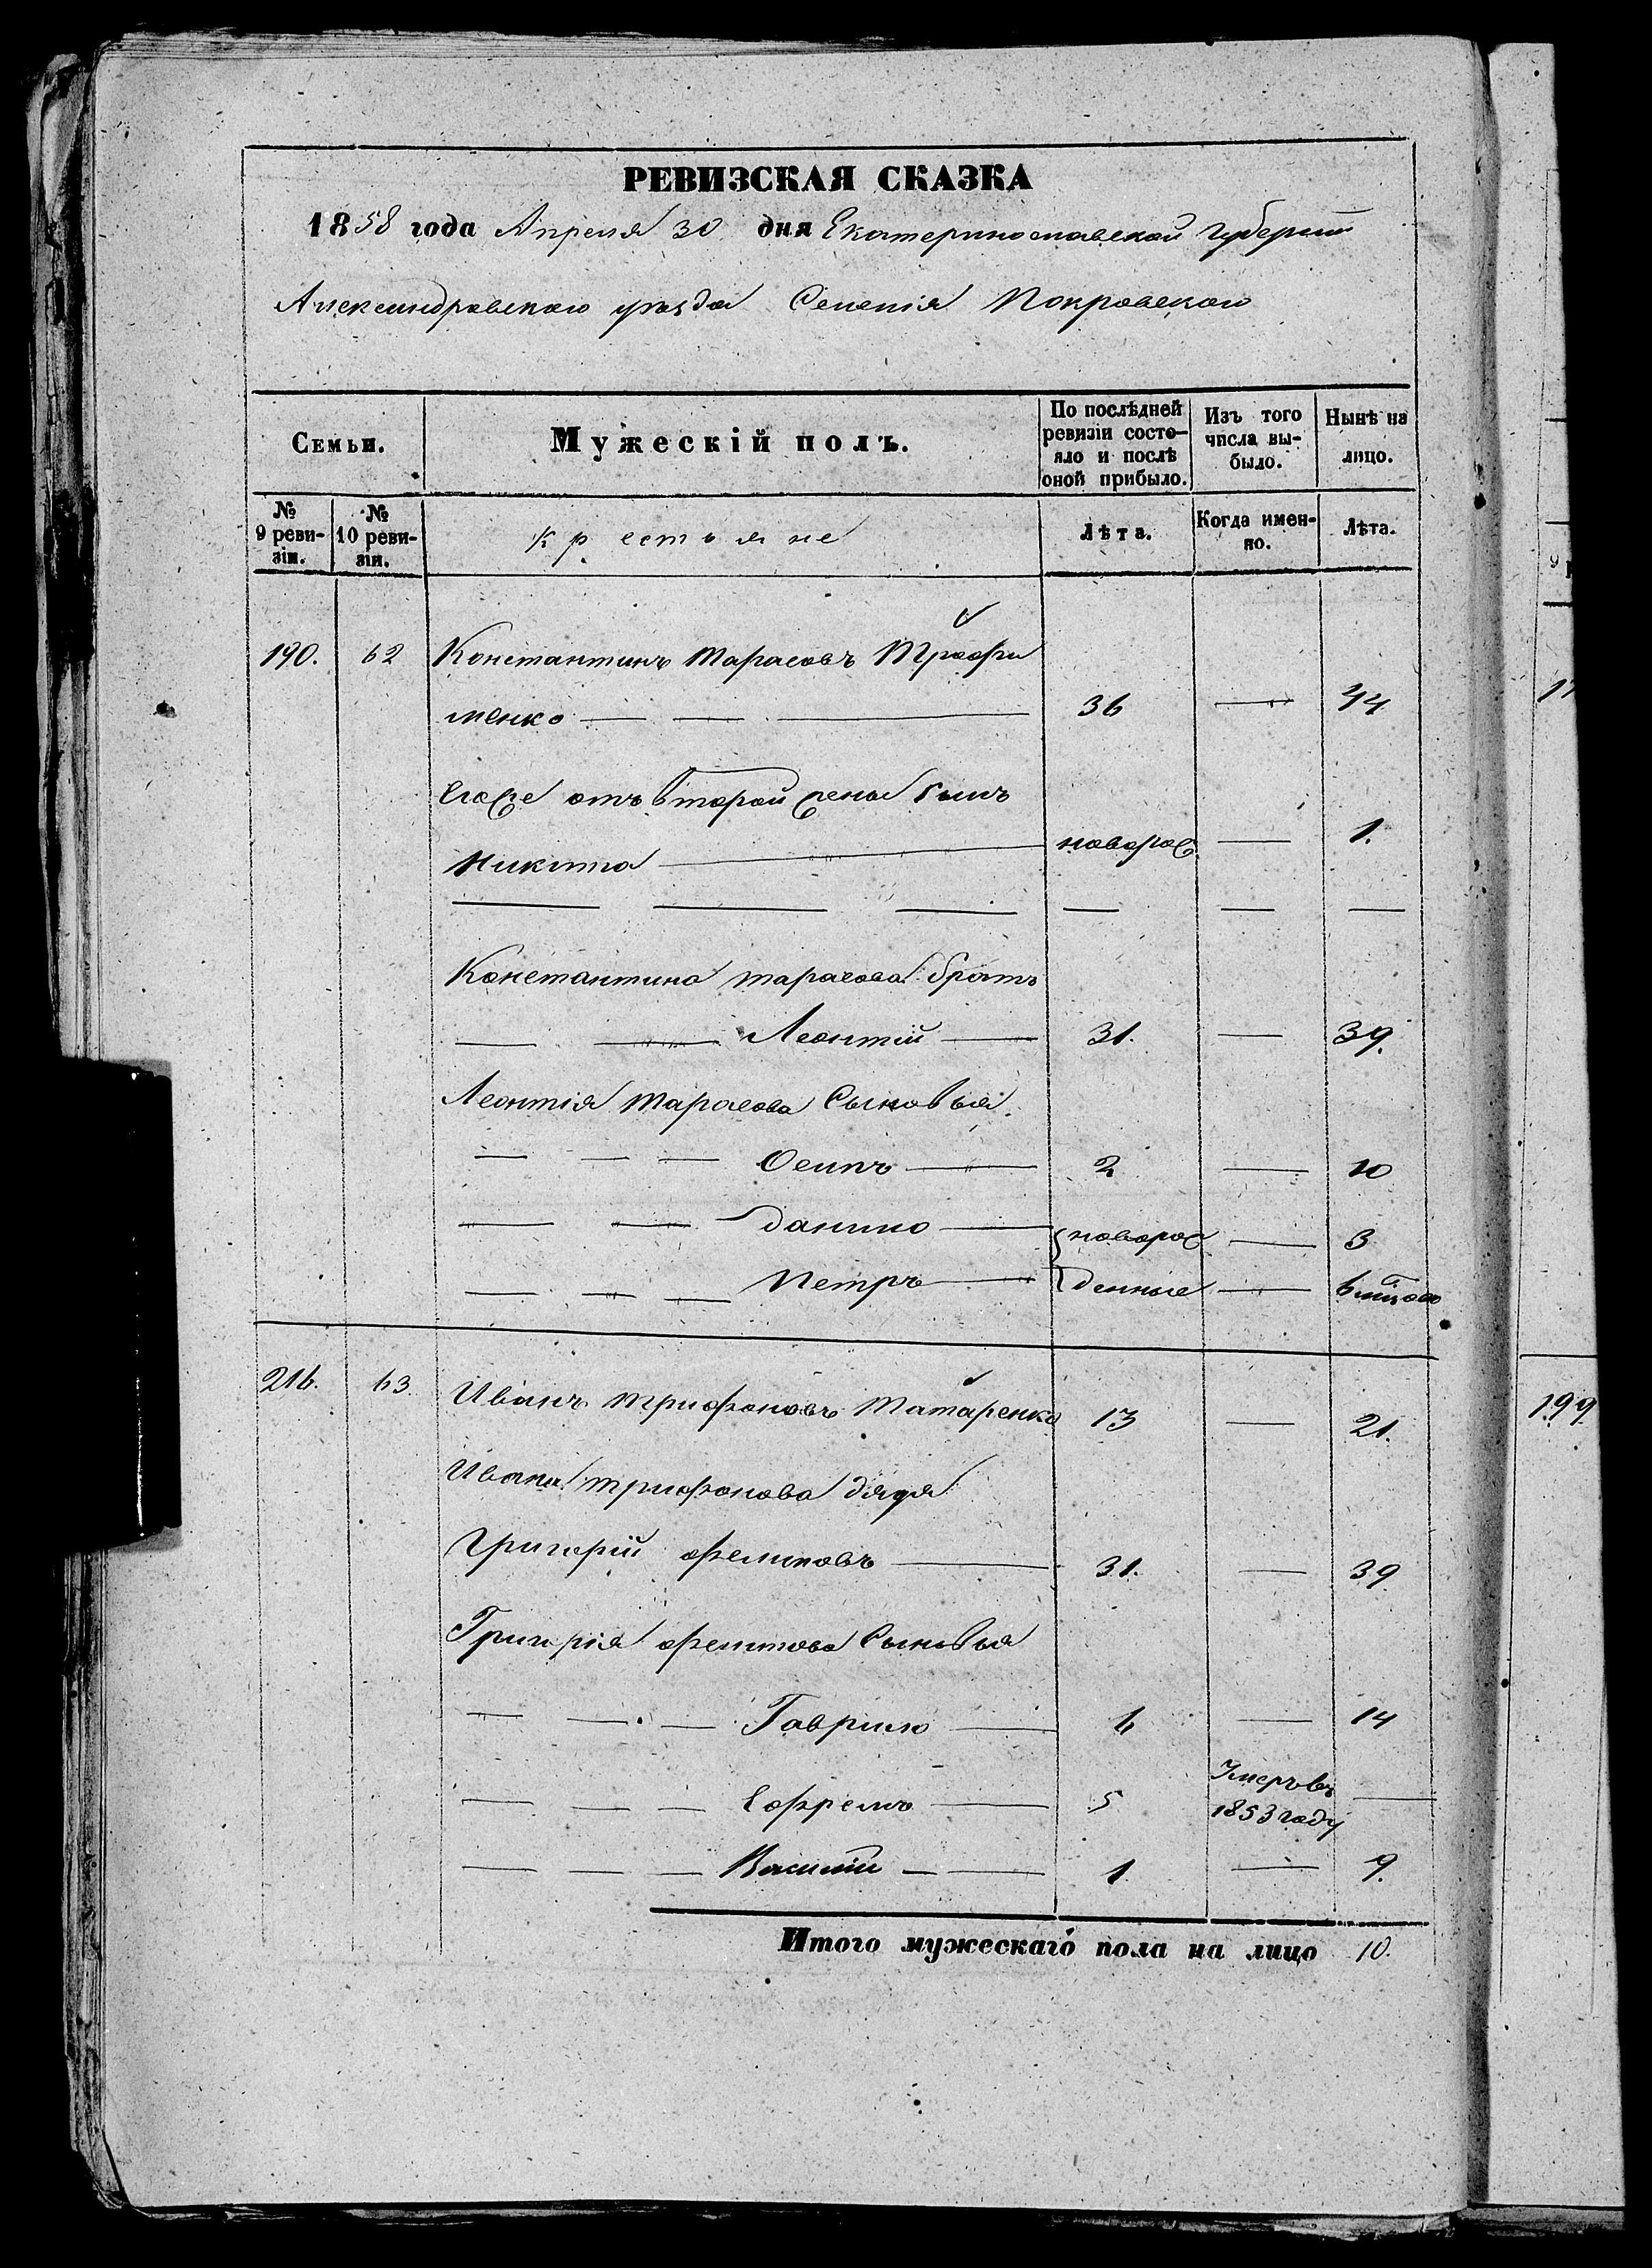 РЕВИЗСКАЯ СКАЗКА
1858 года Апреля 30 дня Екатеринославской Губернiи
Александровского уѣзда Селенiя Покровского
Семьи.
Мужескiй полъ.
По послѣдней ревизiи состояло и послѣ оной прибыло.
Изъ того числа выбыло.
Нынѣ на лицо.
№ 9 ревизiи.
№ 10 ревизiи.
крестьяне
Лѣта.
Когда именно.
Лѣта.
190. 62 Константинъ Тарасовъ Трофи
менко 36 44
Егоже отъ второй жены сынъ
Никита новорож. 1.
Константина Тарасова братъ
Леонтiй 31. 39.
Леонтiя Тарасова Сыновья
Осипъ 2 10
Данило новорож 3
Петръ денные
216. 63. Иванъ Трифоновъ Татаренко 13 21.
Ивана Трифонова дядя
Григорiй Филиповъ 31. 39
Григорiя Филипова Сыновья
Гаврило 6 14
Ефремъ 5 Умеръ въ 1853 году
Василiй 1 9.
Итого мужескаго пола на лицо 10.
199